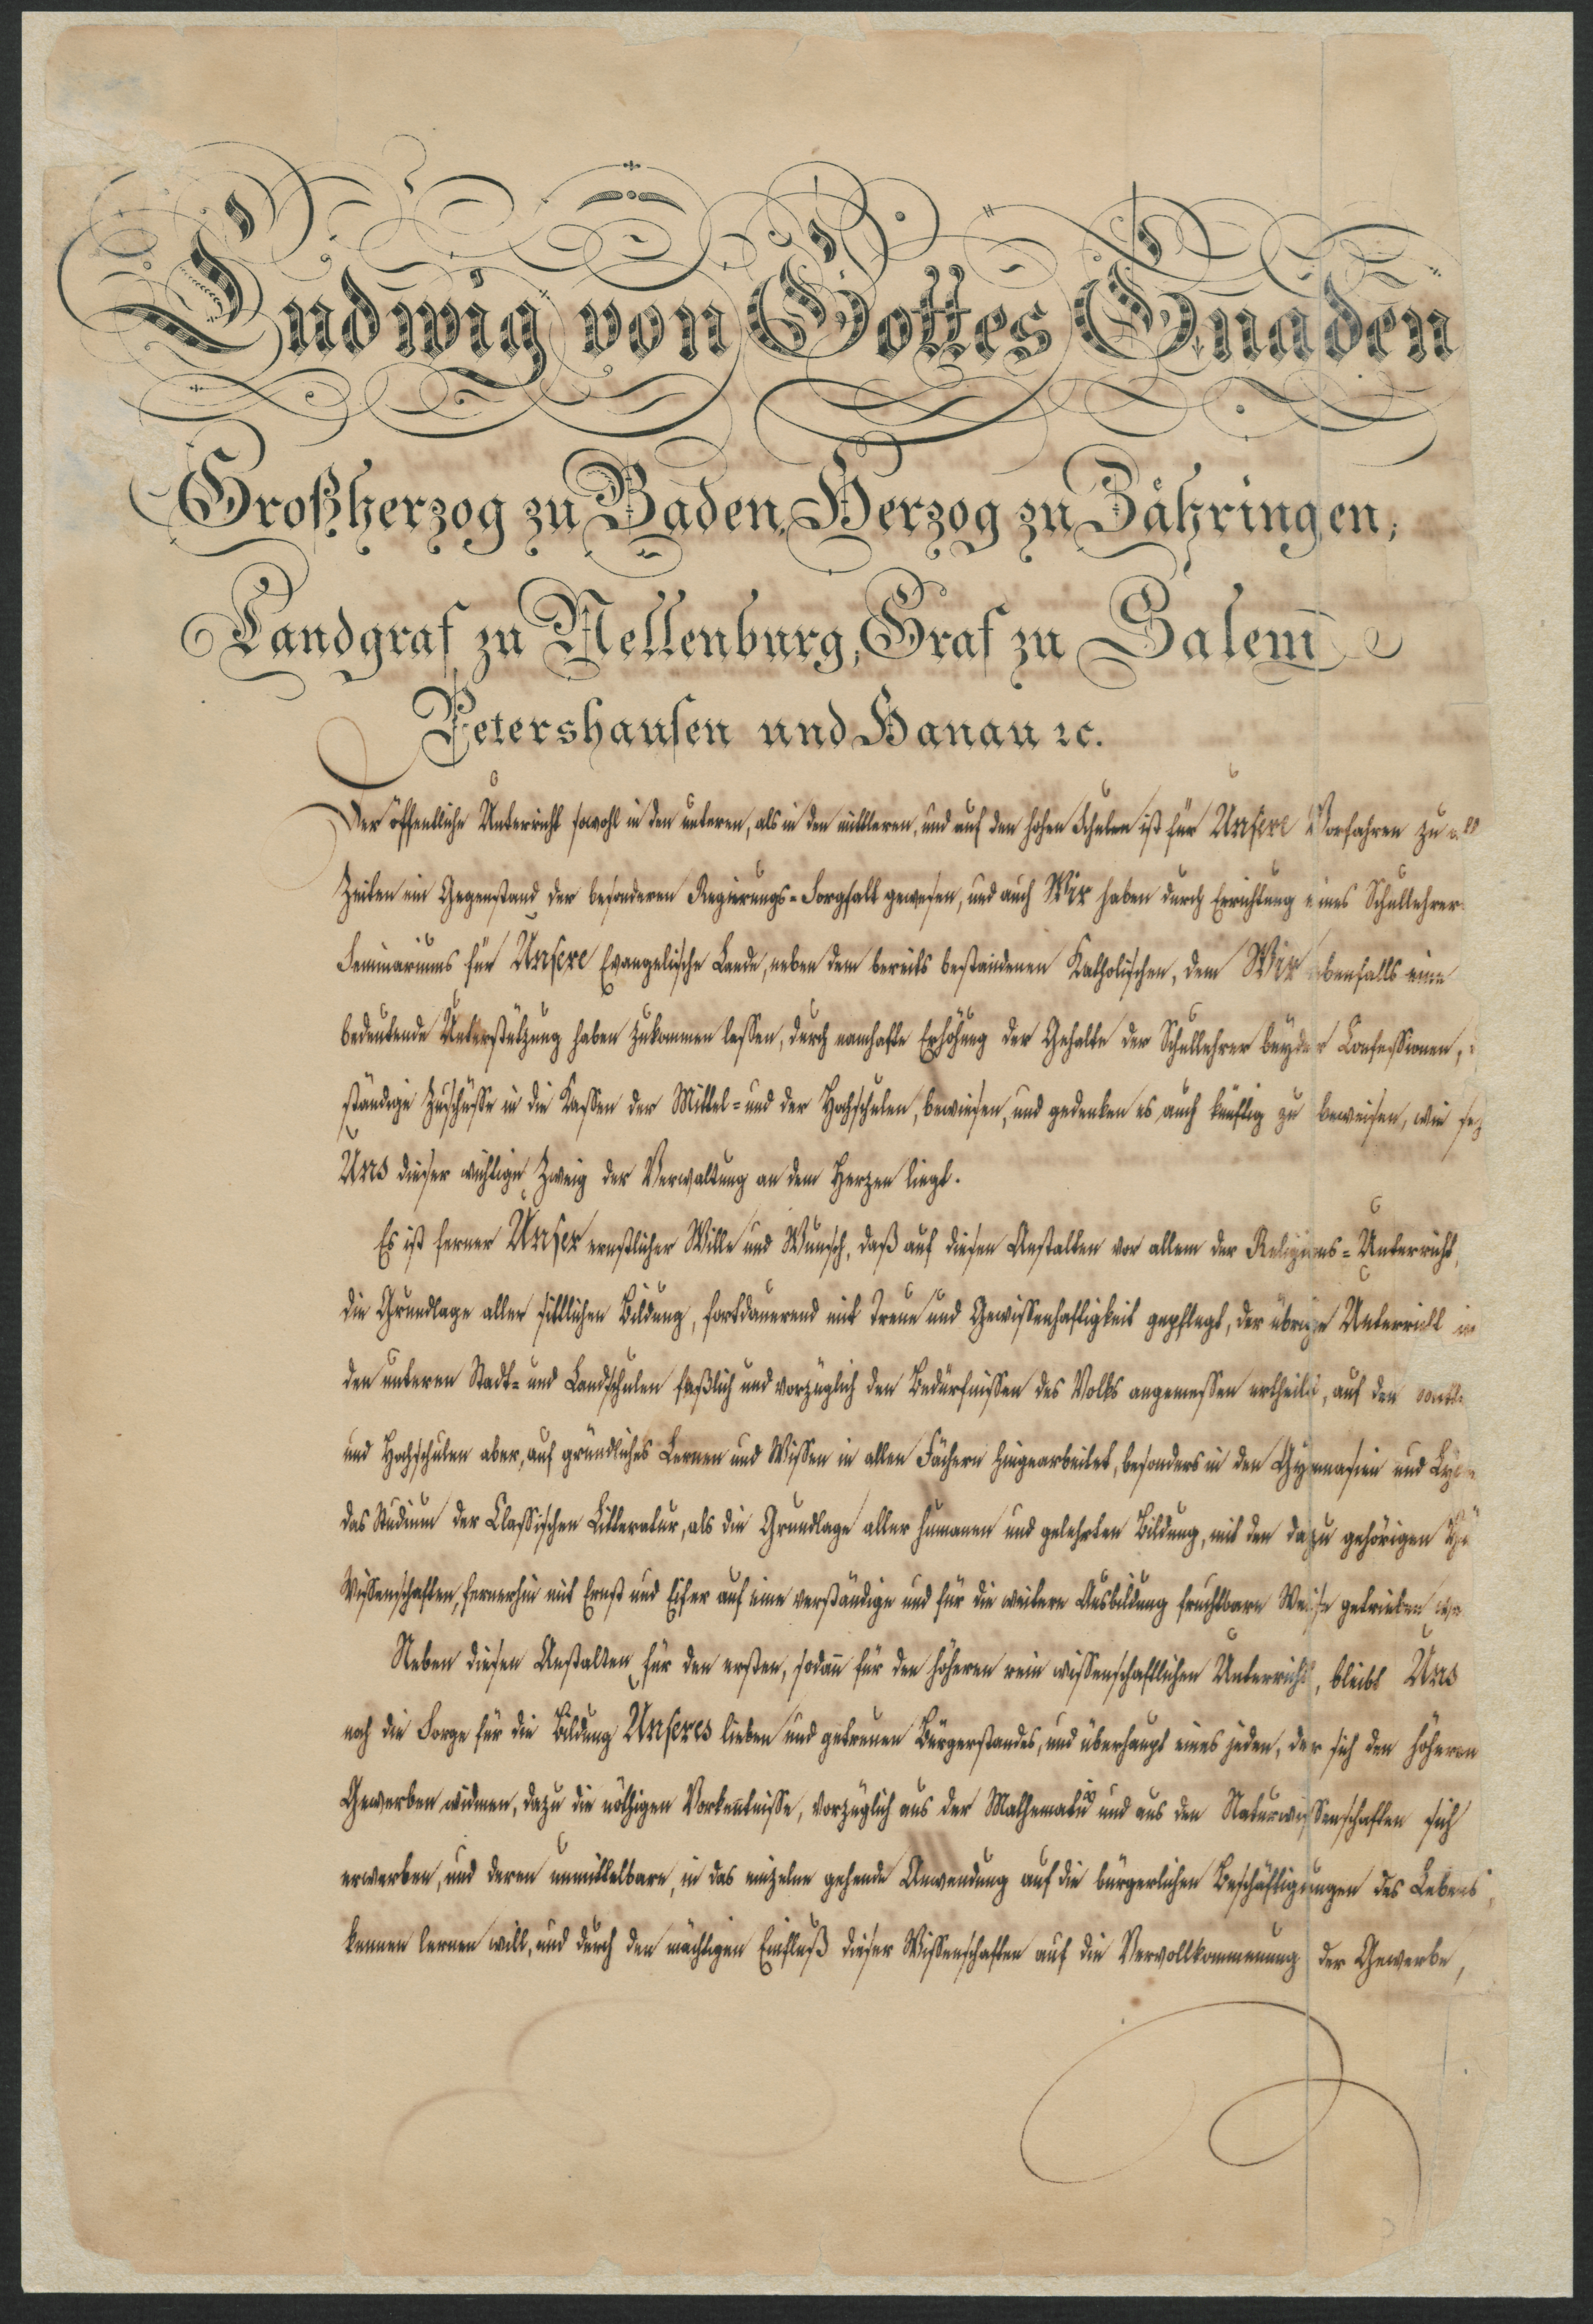 Ludwig von Gottes Gnaden
Großherzog zu Baden, Herzog zu Zähringen,
Landgraf zu Nellenburg, Graf zu Salem
Petershausen und Hanau ꝛc.
Der öffentliche Unterricht sowohl in den unteren, als in den mittleren, und auf den hohen Schulen ist für Unsere Vorfahren zu
Zeiten ein Gegenstand der besonderen Regierungs-Sorgfalt gewesen, und auch Wir haben durch Errichtung eines Schullehrer-
Seminariums für Unsere Evangelische Lande, neben dem bereits bestandenen Katholischen, dem Wir ebenfalls eine
bedeutende Unterstützung haben zukommen lassen, durch namhafte Erhöhung der Gehalte der Schullehrer beyder Confessionen,
ständige Zuschüsse in die Kassen der Mittel- und der Hochschulen, bewiesen, und gedenken es auch künftig zu beweisen, wie
Uns dieser wichtige Zweig der Verwaltung an dem Herzen liegt.
Es ist ferner Unser ernstlicher Wille und Wunsch, daß auf diesen Anstalten vor allem der Religions-Unterricht,
die Grundlage aller sittlichen Bildung, fortdauerend mit Treue und Gewissenhaftigkeit gepflegt, der übrige Unterricht in
den unteren Stadt- und Landschulen faßlich und vorzüglich den Bedürfnissen des Volks angemessen ertheilt, auf den
und Hochschulen aber, auf gründliches Lernen und Wissen in allen Fächern hingearbeitet, besonders in den Gymnasien und
das Studium der Classischen Litteratur, als die Grundlage aller humanen und gelehrten Bildung, mit den dazu gehörigen
Wissenschaften, fernerhin mit Ernst und Eifer auf eine verständige und für die weitere Ausbildung fruchtbare Weise getrieben
Neben diesen Anstalten für den ersten, sodañ für den höheren rein wissenschaftlichen Unterricht, bleibt Uns
noch die Sorge für die Bildung Unseres lieben und getreuen Bürgerstandes, und überhaupt eines jeden, der sich den höheren
Gewerben widmen, dazu die nöthigen Vorkeñtnisse, vorzüglich aus der Mathematik und aus den Naturwissenschaften sich
erwerben, und deren unmittelbare, in das einzelne gehende Anwendung auf die bürgerlichen Beschäftigungen des Lebens,
kennen lernen will, und durch den mächtigen Einfluß dieser Wissenschaften auf die Vervollkommnung der Gewerbe,